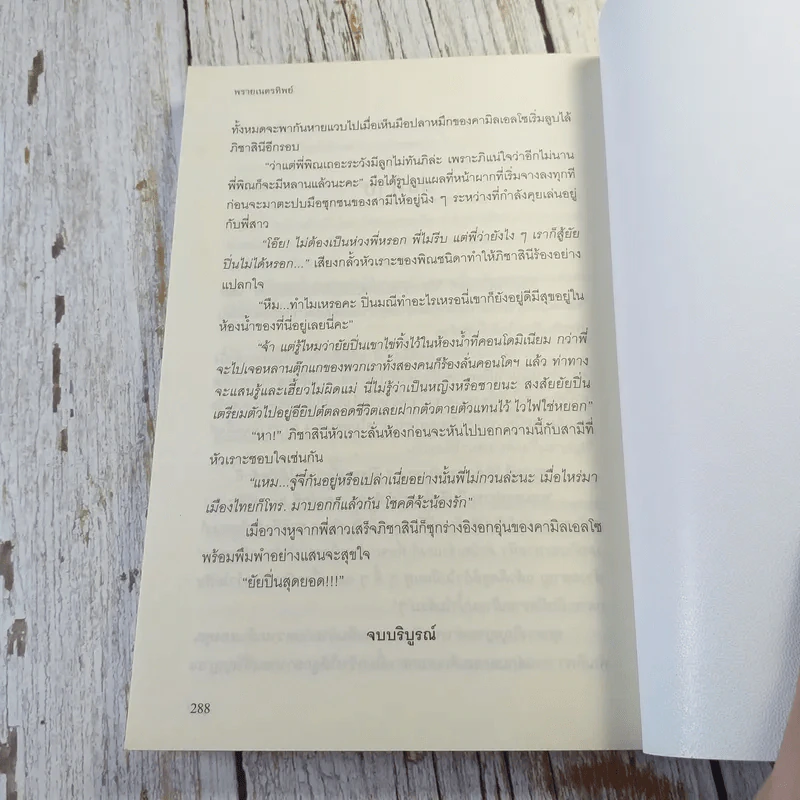 พรายเนตรทิพย์
ทั้งหมดจะพากันหายแวบไปเมื่อเห็นมือปลาหมึกของคามิลเอลโซเริ่มลูบไล้
ภิชาสินีอีกรอบ
“ว่าแต่พี่พิณเถอะระวังมีลูกไม่ทันภิล่ะ เพราะภิแน่ใจว่าอีกไม่นาน
พี่พิณก็จะมีหลานแล้วนะคะ” มือได้รูปลูบแผลที่หน้าผากที่เริ่มจางลงทุกที
ก่อนจะมาตะปบมือซุกซนของสามีให้อยู่นิ่ง ๆ ระหว่างที่กำลังคุยเล่นอยู่
กับพี่สาว
“โอ๊ย! ไม่ต้องเป็นห่วงพี่หรอก พี่ไม่รีบ แต่พี่ว่ายังไง ๆ เราก็สู้ยัย
ปิ่นไม่ได้หรอก...” เสียงกลั้วหัวเราะของพิณชนิดาทำให้ภิชาสินีร้องอย่าง
แปลกใจ
“หืม...ทำไมเหรอคะ ปิ่นมณีทำอะไรเหรอนี่เขาก็ยังอยู่ดีมีสุขอยู่ใน
ห้องน้ำของที่นี่อยู่เลยนี่คะ”
“จ้า แต่รู้ไหมว่ายัยปิ่นเขาไข่ทิ้งไว้ในห้องน้ำที่คอนโดมิเนียม กว่าพี่
จะไปเจอหลานตุ๊กแกของพวกเราทั้งสองคนก็ร้องลั่นคอนโดฯ แล้ว ท่าทาง
จะแสนรู้และเฮี้ยวไม่ผิดแม่ นี่ไม่รู้ว่าเป็นหญิงหรือชายนะ สงสัยยัยปิ่น
เตรียมตัวไปอยู่อียิปต์ตลอดชีวิตเลยฝากตัวตายตัวแทนไว้ ไวไฟใช่หยอก”
“หา!” ภิชาสินีหัวเราะลั่นห้องก่อนจะหันไปบอกความนี้กับสามีที่
หัวเราะชอบใจเช่นกัน
“แหม...จู๋จี๋กันอยู่หรือเปล่าเนี่ยอย่างนั้นพี่ไม่กวนล่ะนะ เมื่อไหร่มา
เมืองไทยก็โทร. มาบอกก็แล้วกัน โชคดีจ้ะน้องรัก”
เมื่อวางหูจากพี่สาวเสร็จภิชาสินีก็ซุกร่างอิงอกอุ่นของคามิลเอลโซ
พร้อมพึมพำอย่างแสนจะสุขใจ
“ยัยปิ่นสุดยอด!!!”
จบบริบูรณ์
288